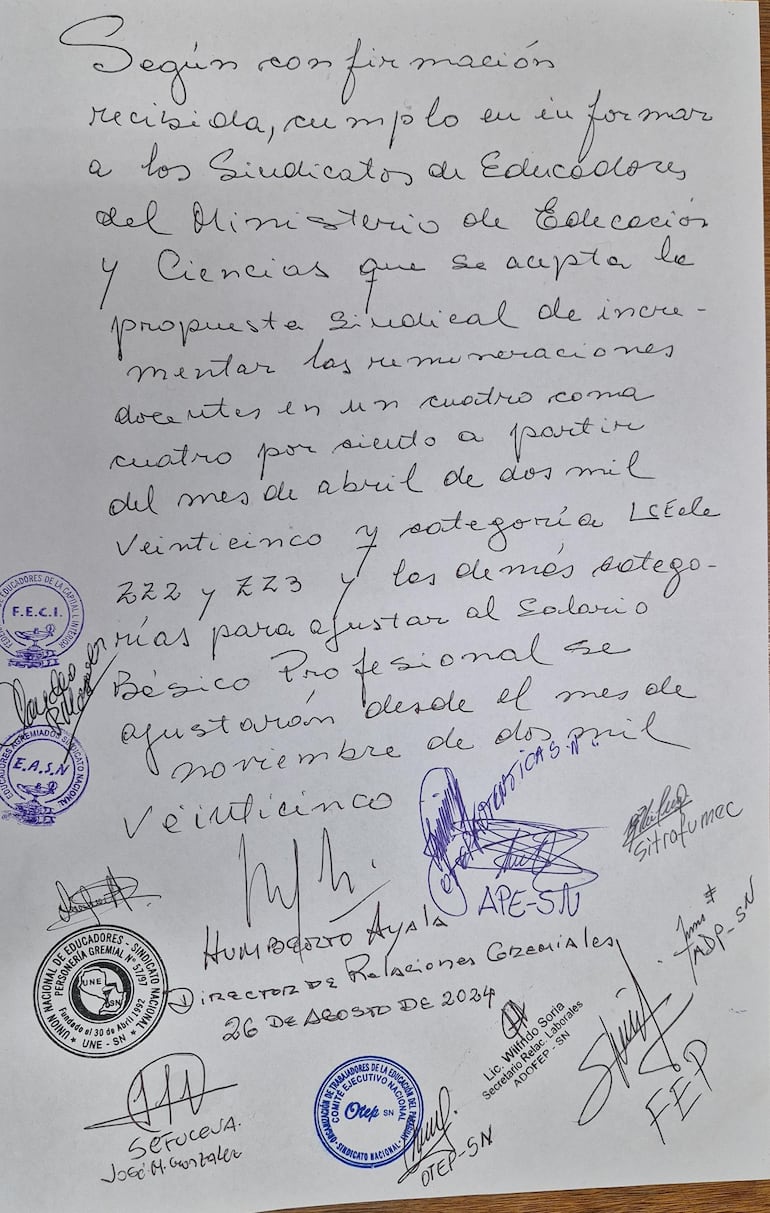 Según confirmación
recibida, cumplo en informar
a los Sindicatos de Educadores
del Ministerio de Educación
y Ciencias que se acepta la
propuesta sindical de incre-
mentar las remuneraciones
docentes en un cuatro coma
cuatro por siento a partir
del mes de abril de dos mil
veinticinco y categoría
ZZ2 y ZZ3 y las demás catego-
rías para ajustar al Salario
Básico Profesional se
ajustarán desde el mes de
noviembre de dos mil
veinticinco
F.E.C.I.
EDUCADORES DE LA CAPITAL INTERIOR
E.A.S.N
EDUCADORES AGREMIADOS SINDICATO NACIONAL
APE-SN
Sitrafumec
HUMBERTO AYALA
DIRECTOR DE RELACIONES GREMIALES
26 DE AGOSTO DE 2024
UNION NACIONAL DE EDUCADORES - SINDICATO NACIONAL
PERSONERÍA GREMIAL N° 57/97
UNE
SN
Fundado el 30 de Abril 1992
UNE - SN
Lic. Wilfrido Soria
Secretario Relac. Laborales
ADOFEP - SN
FEP
ORGANIZACIÓN DE TRABAJADORES DE LA EDUCACIÓN DEL PARAGUAY
COMITÉ EJECUTIVO NACIONAL
Otep SN
SINDICATO NACIONAL
OTEP-SN
José M. Gonzalez